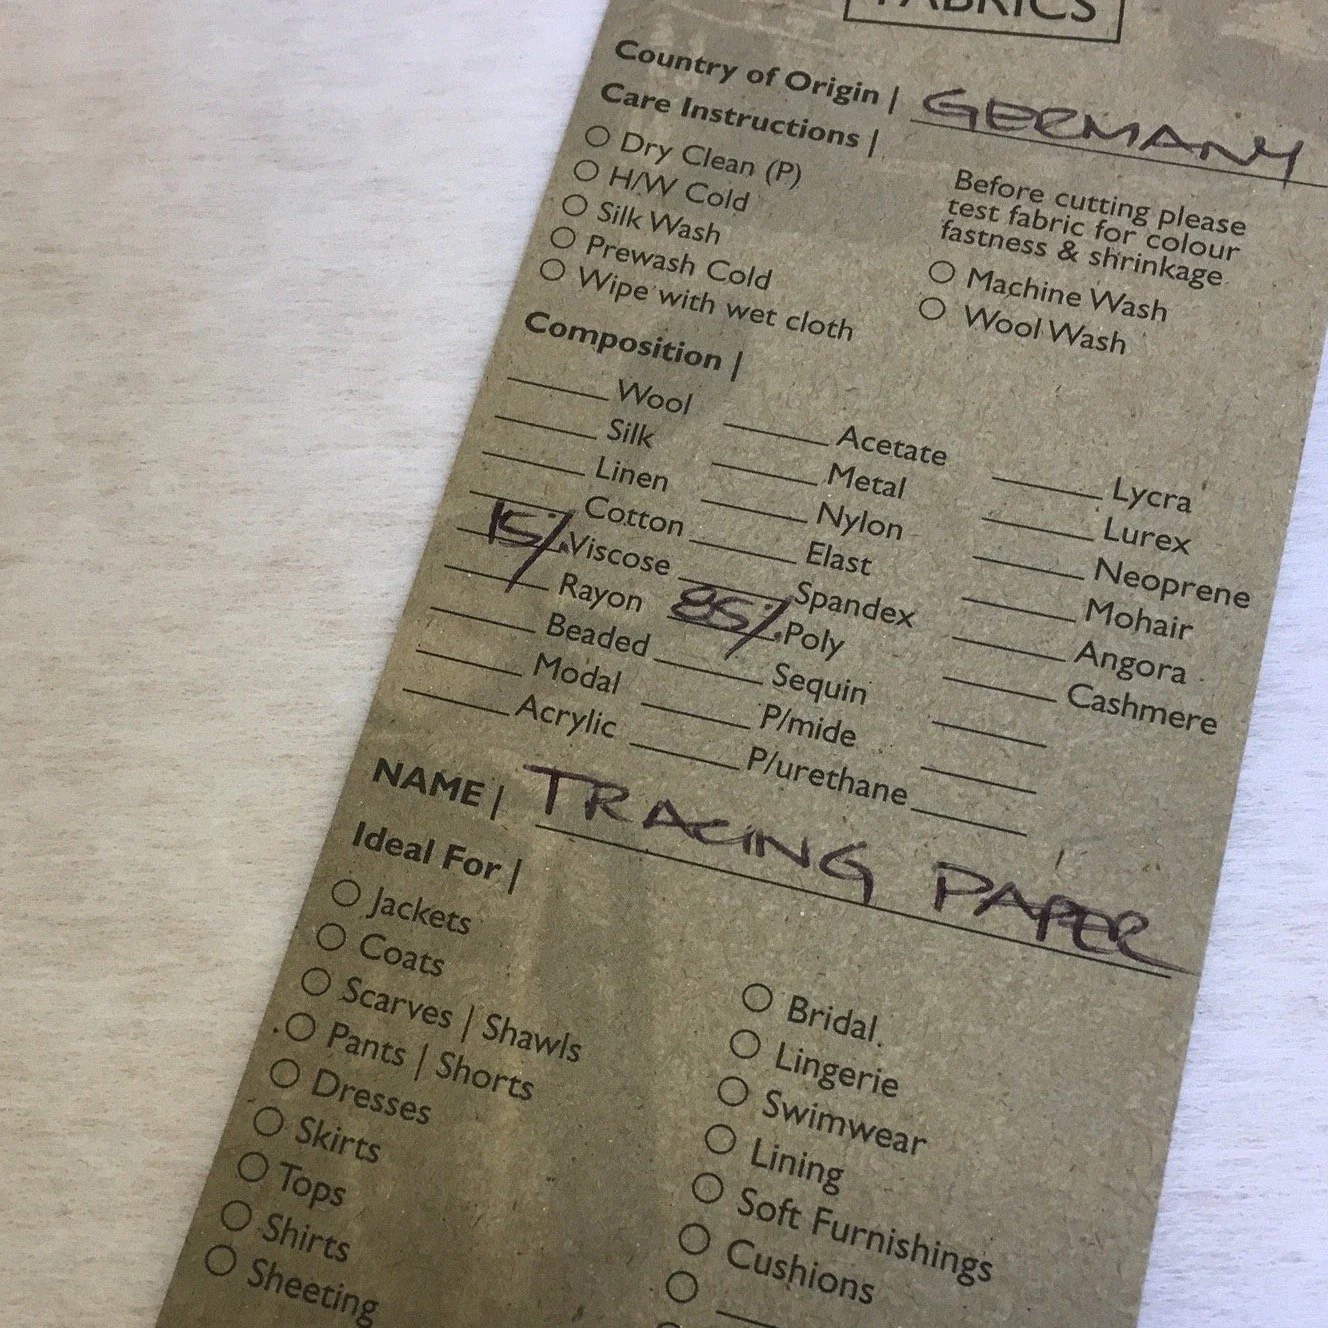 FABRICS
Country of Origin | GERMANY
Care Instructions |
Dry Clean (P)
H/W Cold
Silk Wash
Prewash Cold
Wipe with wet cloth
Before cutting please
test fabric for colour
fastness & shrinkage
Machine Wash
Wool Wash
Composition |
Wool
Silk
Linen
Cotton
15% Viscose
Rayon
Beaded
Modal
Acrylic
Acetate
Metal
Nylon
Elast
Spandex
85% Poly
Sequin
P/mide
P/urethane
Lycra
Lurex
Neoprene
Mohair
Angora
Cashmere
NAME | TRACING PAPER
Ideal For |
Jackets
Coats
Scarves | Shawls
Pants | Shorts
Dresses
Skirts
Tops
Shirts
Sheeting
Bridal
Lingerie
Swimwear
Lining
Soft Furnishings
Cushions